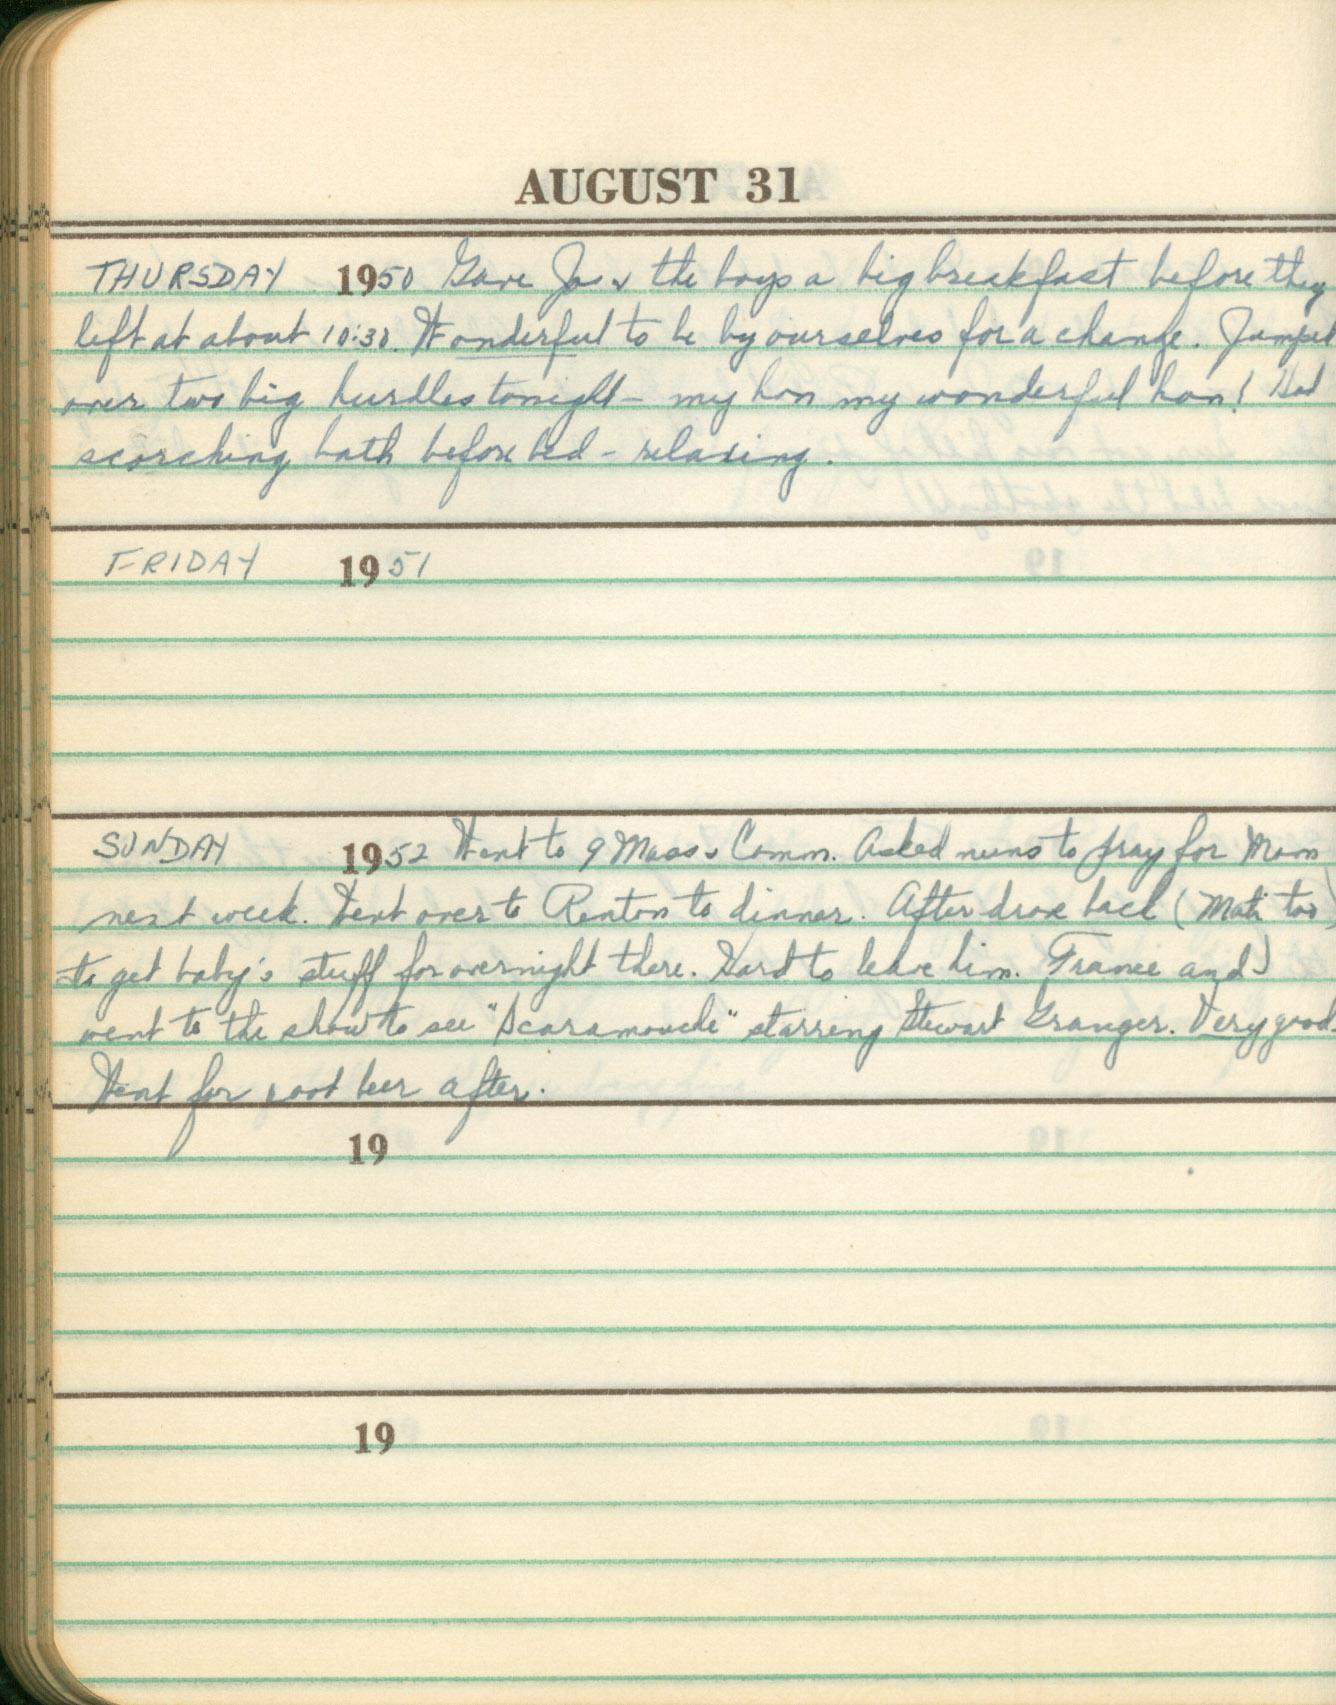 AUGUST 31
THURSDAY 1950 Gave Jos & the boys a big breakfast before they
left at about 10:30. Wonderful to be by ourselves for a change. Jumped
over two big hurdles tonight - my hon my wonderful hon! Had
scorching bath before bed - relaxing.
FRIDAY 1951
SUNDAY 1952 Went to 9 Mass & Comm. Asked nuns to pray for Mom
next week. Went over to Renton to dinner. After drove back ( too)
to get baby's stuff for overnight there. Hard to leave him. Francie and I
went to the show to see "Scaramouche" starring Stewart Granger. Very good
Went for root beer after.
19
19